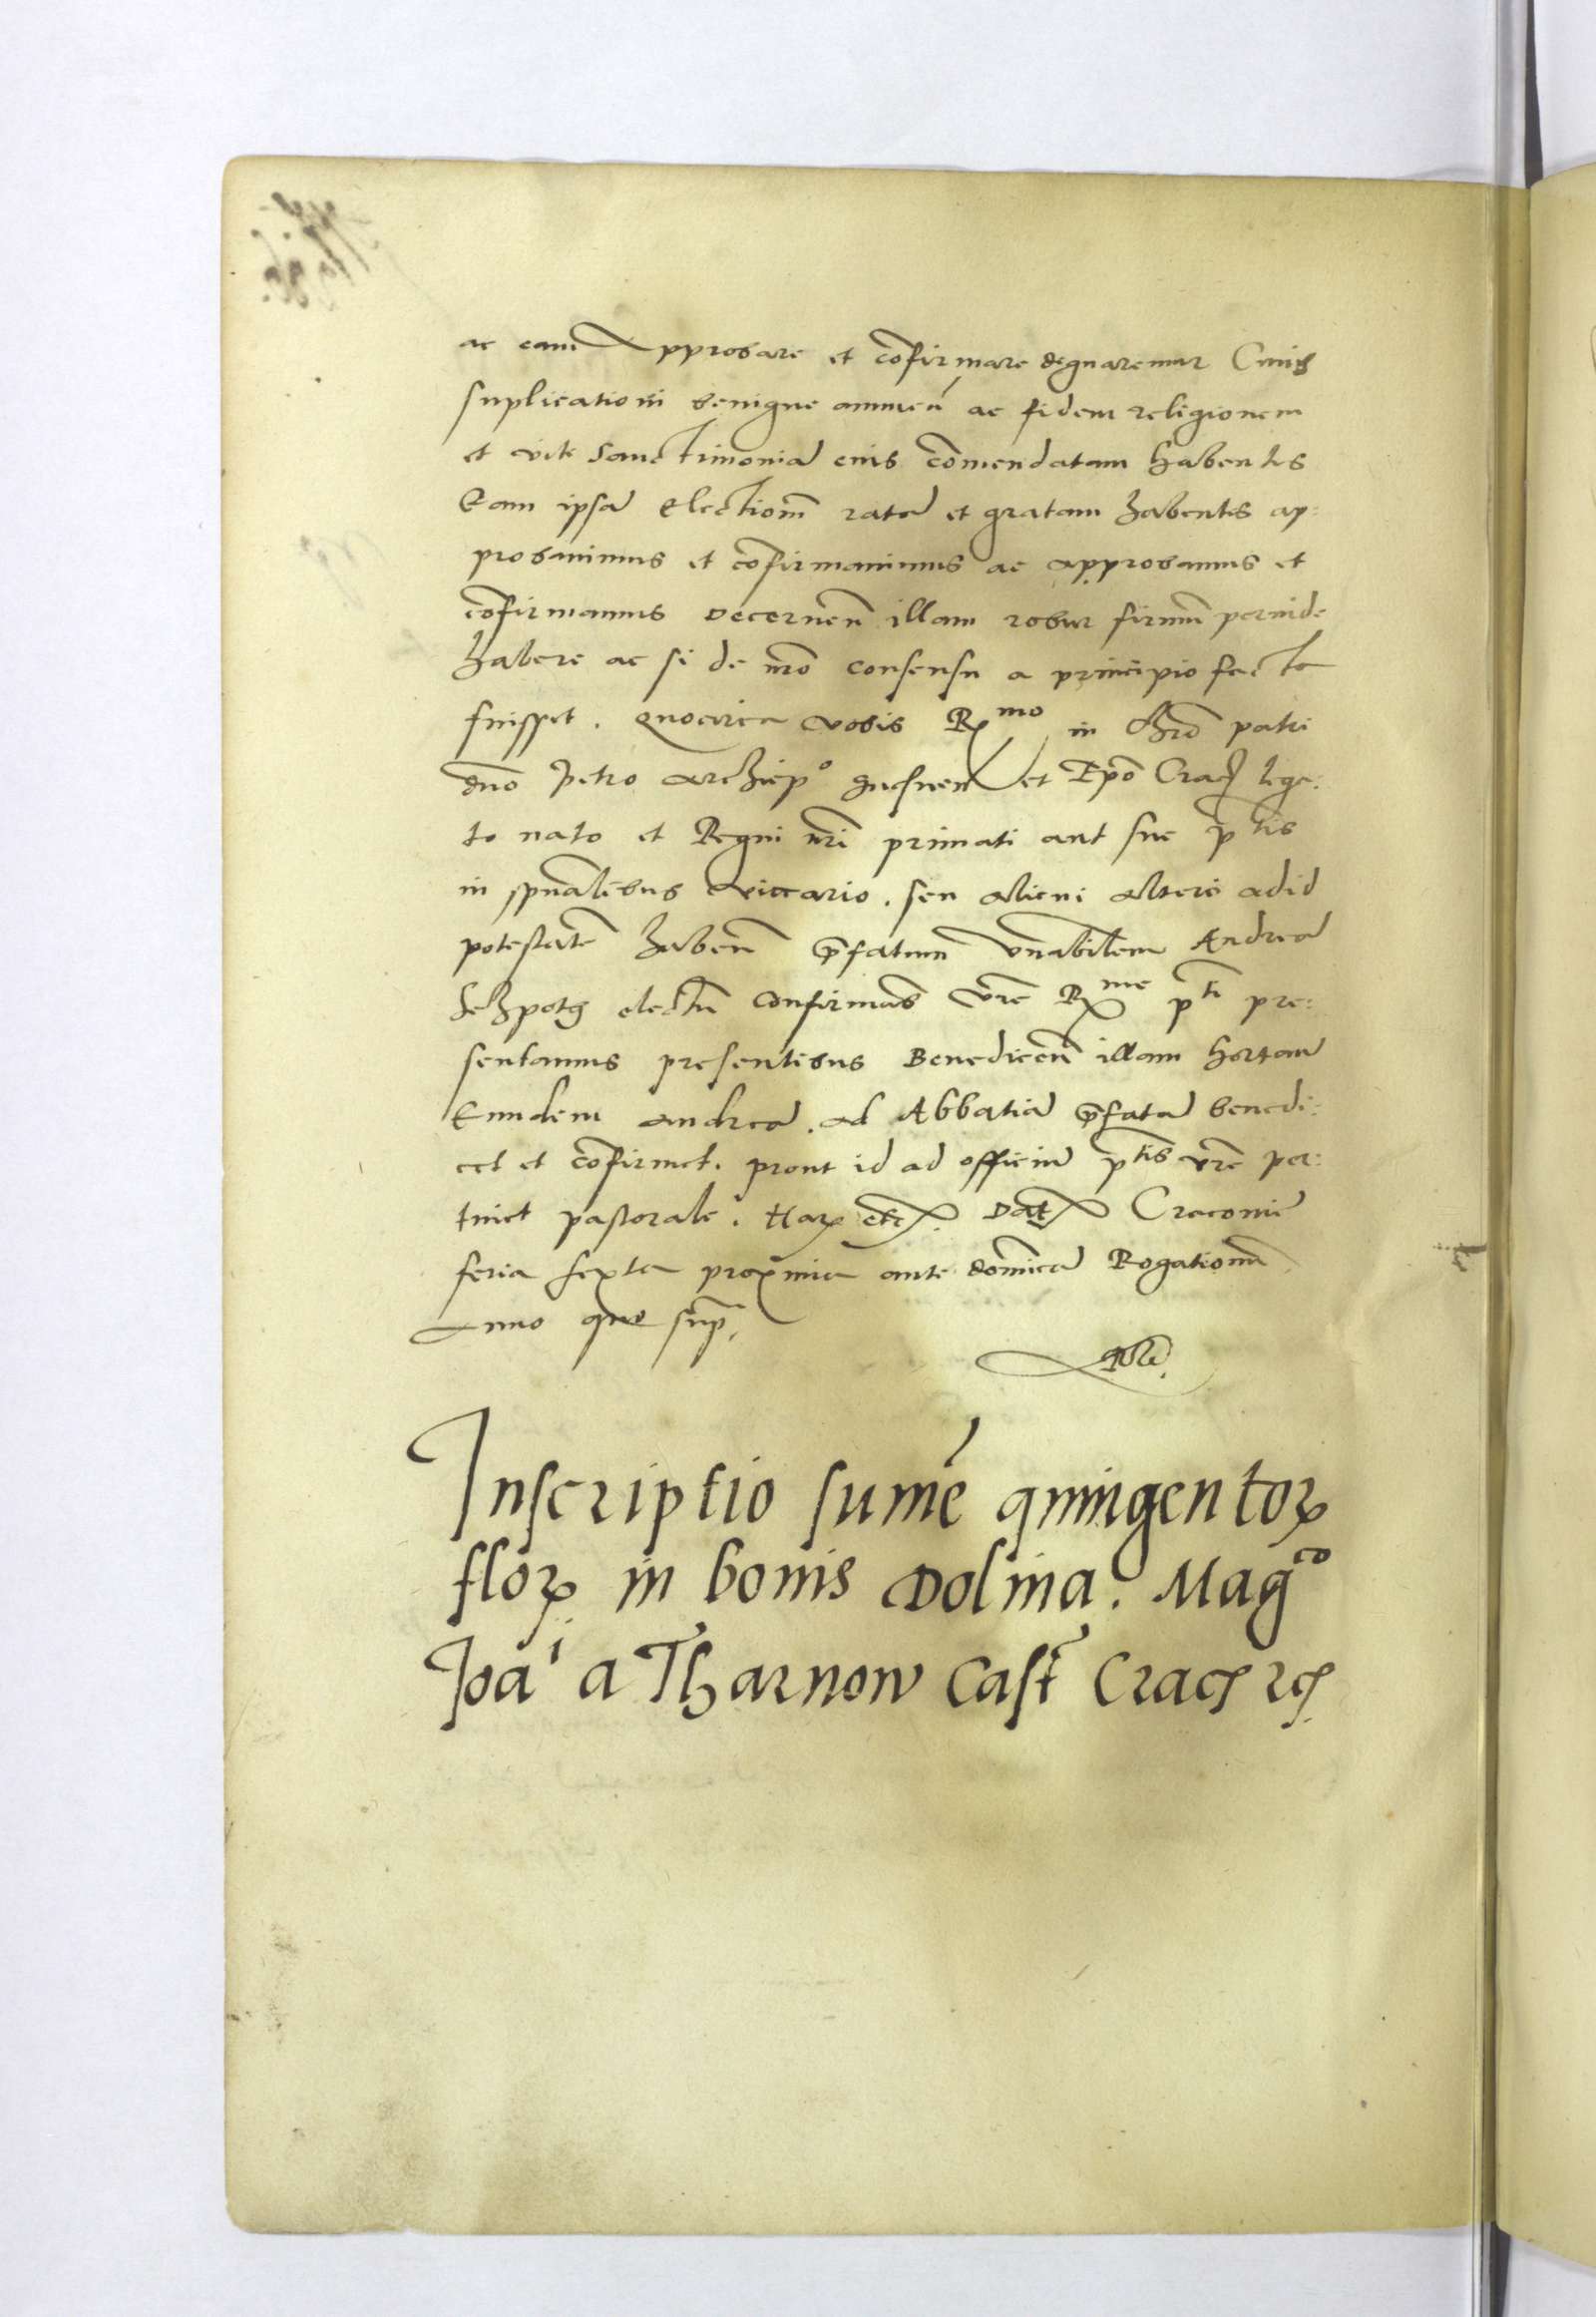 ac eam approbare et cōfirmare dignaremur Cuius
suplicationi benigne annueñ ac fidem religionem
et vite Sanctimoniā eius cōmendatam habentes
Eam ipsā Electionē ratā et gratam habentes ap:
probauimus et cōfirmauimus ac approbamus et
cōfirmamus Decerneñ illam robur firmū perinde
habere ac si de nr̄o consensu a principio facta
fuisset. Quocirca vobis R^mo in Chrō patri
dn̄o Petro Archiep^o gnesneñ et Ep̄o Crac̄ lega:
to nato et Regni nr̄i primati aut sue p̄tis
in sp̄ualibus viccario. seu alicui alteri ad id
potestatē habeñ p̄fatum vn̄abilem Andreā
electū confirmatū vr̄e R^me p^ti pre:
sentamus presentibus Benediceñ illam hortam̄
Eundem andreā. ad Abbatiā p̄fatā benedi:
cet et cōfirmet. prout id ad officiū p̄tis vr̄e per:
tinet pastorale. Harꝝ etc̄. Dat̄ Cracouie
feria sexta proxima ante dominicā Rogationū
Anno quo sup̄.
Inscriptio sum̄e quingentoꝝ
floꝝ in bonis Dolina. Mag^co
Joā́i a Tharnow Cast̄ Crac̄ rc̄.